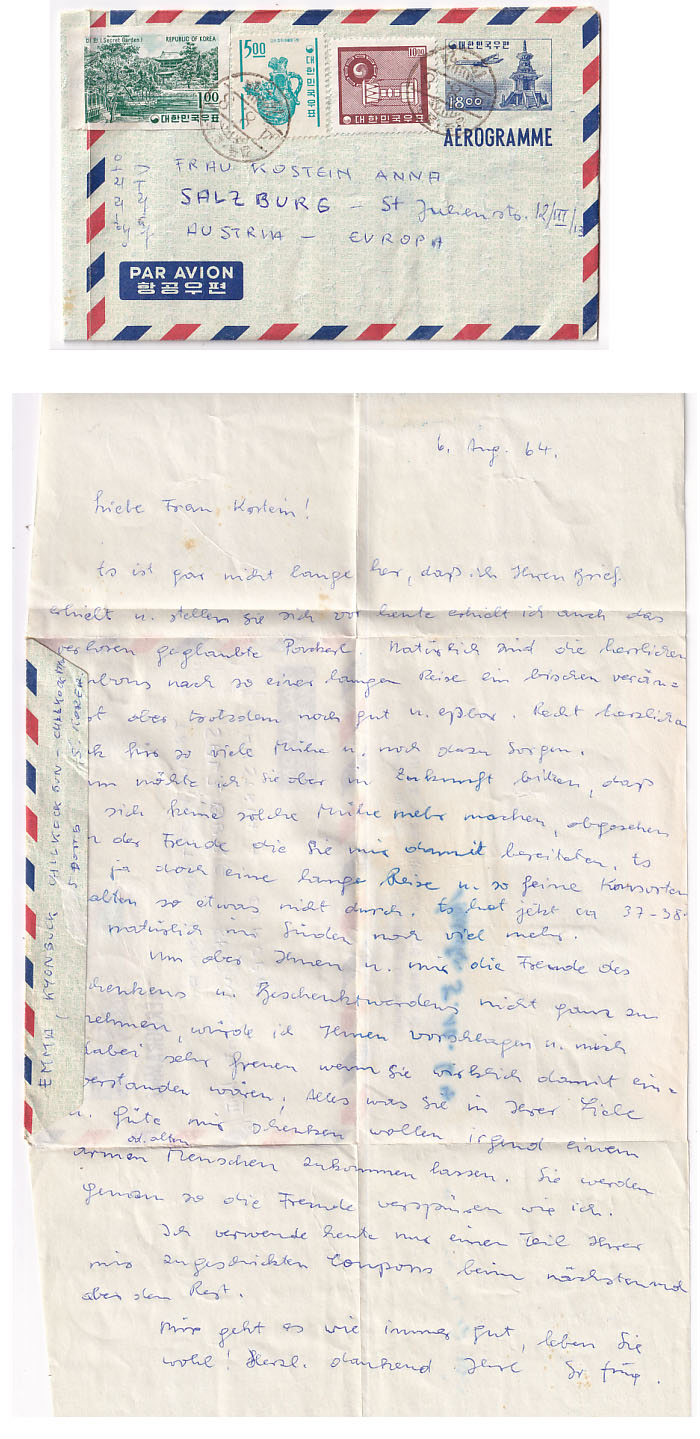 비원 (Secret Garden) REPUBLIC OF KOREA
1.00
대한민국우표
5.00
대한민국우표
10.00
대한민국우표
대한민국우편
18.00
AÉROGRAMME
FRAU KOSTEIN ANNA
SALZBURG - St Julienstr. 12/III/13
AUSTRIA - EVROPA
오스트리아
구라파
PAR AVION
항공우편
6. Aug. 64.
Liebe Frau Kostein!
Es ist gar nicht lange her, daß ich Ihren Brief
erhielt u. stellen Sie sich vor heute erhielt ich auch das
verloren geglaubte Packerl. Natürlich sind die herrlichen
nbons nach so einer langen Reise ein bischen verän=
t aber trotzdem noch gut u. eßbar. Recht herzlichen
k für so viele Mühe u. noch dazu Sorgen.
un möchte ich Sie aber in Zukunft bitten, daß
sich keine solche Mühe mehr machen, abgesehen
n der Freude die Sie mir damit bereiteten. Es
ja doch eine lange Reise u. so feine
alten so etwas nicht durch. Es hat jetzt ca 37-38°
natürlich im Süden noch viel mehr.
Um aber Ihnen u. mir die Freude des
chenkens u. Beschenktwerdens nicht ganz zu
nehmen, würde ich Ihnen vorschlagen u. mich
dabei sehr freuen wenn Sie wirklich damit ein=
verstanden wären; Alles was Sie in Ihrer Liebe
u. Güte mir schenken wollen irgend einem
od. alten
armen Menschen zukommen lassen. Sie werden
genau so die Freude verspüren wie ich.
Ich verwende heute nur einen Teil Ihrer
mir zugeschickten Coupons beim nächstenmal
aber den Rest.
Mir geht es wie immer gut, leben Sie
wohl! Herzl. dankend Ihre Sr.
EMMA / KYONBUCK, CHILKOCK GUN -
S. KOREA